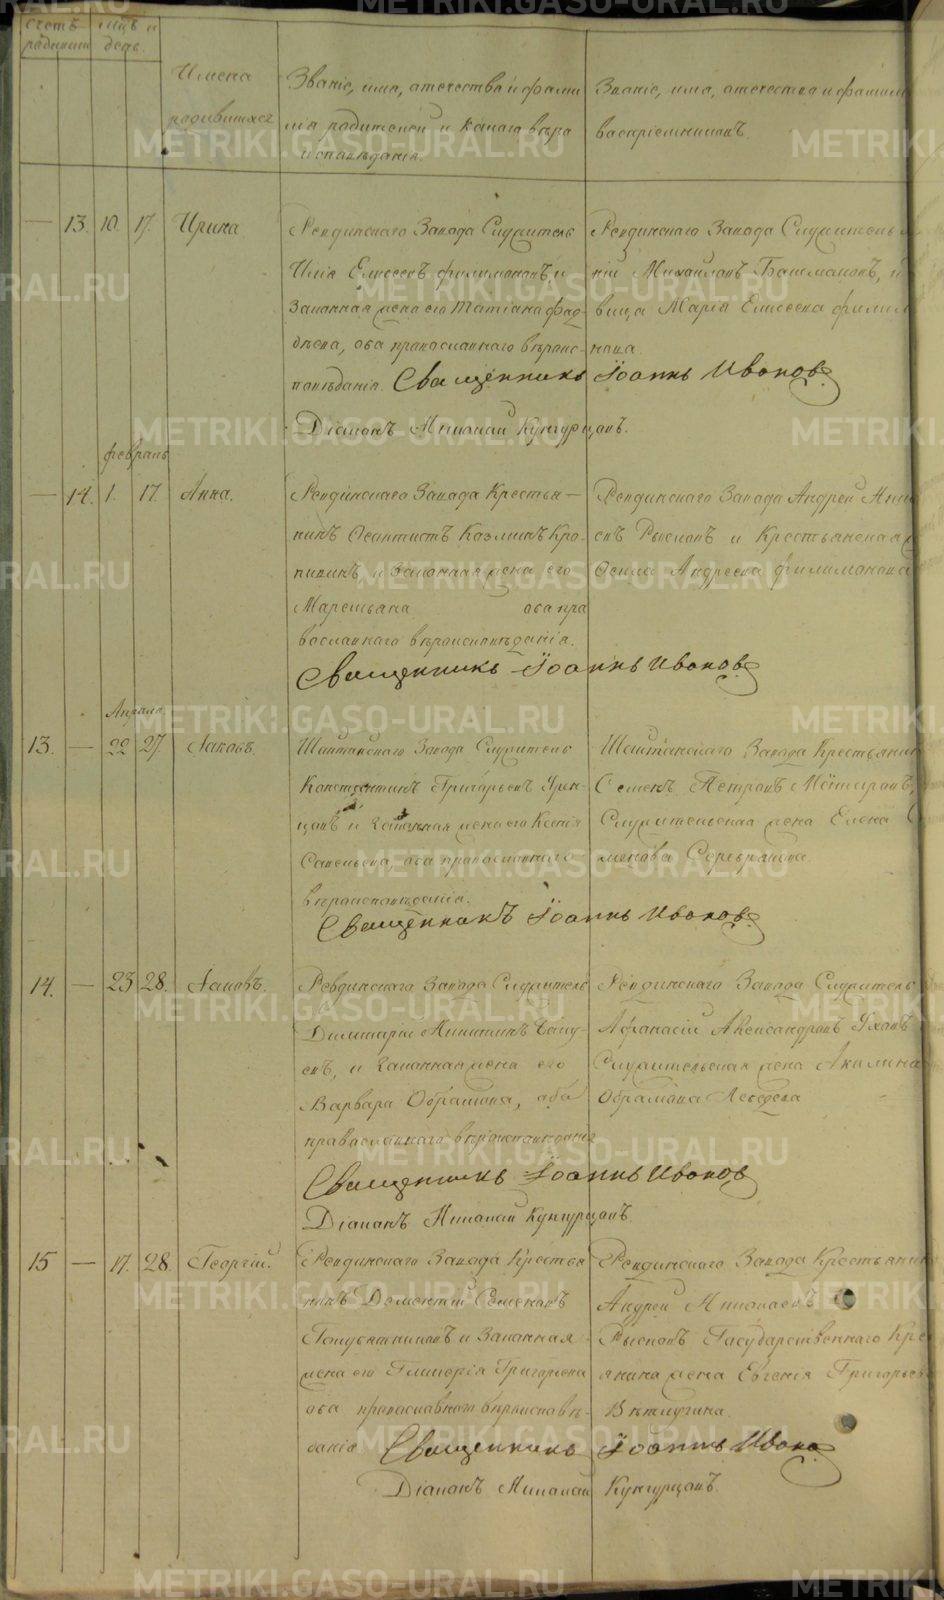 Счетъ родившихся
Мцъ и день.
Имена родившихся
Званіе, имя, отечество и фами
лія родителей и какого вѣро
исповѣданія.
Званіе, имя, отечество и фамилі
воспріемниковъ.
— 13. 10. 17. Ирина
Ревдинскаго Завода Служитель
Илія Елисеевъ Филимоновъ, и
Законная жена его Татіана Фад
дѣева, оба православнаго вѣроис-
повѣданія. Священникъ Іоаннъ Ивановъ
Діаконъ Николай Кунгурцовъ.
Ревдинскаго Завода Служитель
ній Михайловъ Башмаковъ, и
вица Марія Елисеева Филим
нова.
Февраль
— 14. 1. 17. Анна.
Ревдинскаго Завода Крестья—
нинъ
и Законная жена его
Маремьяна оба пра
вославнаго вѣроисповѣданія.
Священникъ Іоаннъ Ивановъ
Ревдинскаго Завода Андрей Ник
евъ Рысковъ и Крестьянская
Андреева Филимонова
Апрѣля
13. — 22 27. Іаковъ.
Шайтанскаго Завода Служитель
Константинъ Григорьевъ
цовъ и Законная жена его Ксенія
Савельева, оба православнаго
вѣроисповѣданія.
Священникъ Іоаннъ Ивановъ
Шайтанскаго Завода Крестьянин
Семенъ Петровъ
Служительская жена Елена
менова Серебрякова.
14. — 23 28. Іаковъ.
Ревдинскаго Завода Служитель
Димитрій Никитинъ
евъ, и Законная жена его
Варвара Обрамова, оба
православнаго вѣроисповѣданія
Священникъ Іоаннъ Ивановъ
Діаконъ Николай Кунгурцовъ.
Ревдинскаго Завода Служитель
Афанасій Александровъ Уховъ
Служительская жена Акилина
Обрамова Лебедева
15 — 17. 28. Георгій.
Ревдинскаго Завода Крестья
нинъ Дементій Семеновъ
и Законная
жена его Гликерія Григорьева
оба православнаго вѣроисповѣ-
данія Священникъ Іоаннъ Ивано
Діаконъ Николай Кунгурцовъ.
Ревдинскаго Завода Крестьянин
Андрей Николаевъ
Рысковъ Государственнаго Кре
янина жена Евгенія Григорьев
METRIKI.GASO-URAL.RU